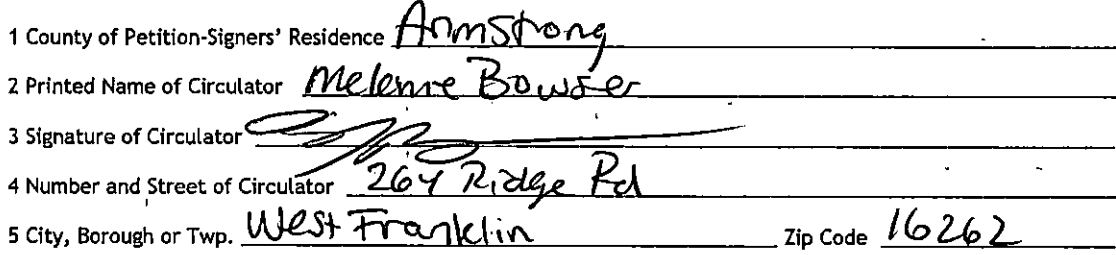 1 County of Petition-Signers' Residence Armstrong
2 Printed Name of Circulator Melenie Bowser
3 Signature of Circulator
4 Number and Street of Circulator 264 Ridge Rd
5 City, Borough or Twp. West Franklin Zip Code 16262